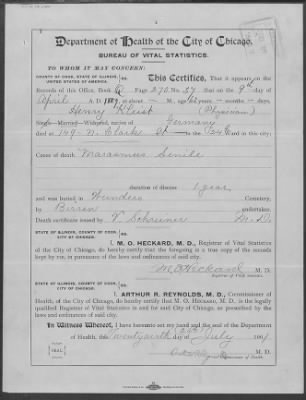 Department of Health of the City of Chicago.
BUREAU OF VITAL STATISTICS.
TO WHOM IT MAY CONCERN:
COUNTY OF COOK, STATE OF ILLINOIS,
UNITED STATES OF AMERICA.
This Certifies, That it appears on the
Records of this Office, Book Q Page 270 No. 57 that on the 9th day of
April A. D. 1889, at — M., age 62 years — months — days,
Henry Kleist (Physician)
Single—Married—Widowed, native of Germany
died at 149 N. Clarke St in the 24th ward in this city;
Cause of death Marasmus Senile
duration of disease 1 year
and was buried in Wunders Cemetery,
by Birren undertaker.
Death certificate issued by V Schreiner M.D.
STATE OF ILLINOIS, COUNTY OF COOK
CITY OF CHICAGO.
I, M. O. HECKARD, M. D., Registrar of Vital Statistics
of the City of Chicago, do hereby certify that the foregoing is a true copy of the records
kept by me, in pursuance of the laws and ordinances of said city.
M O Heckard M. D.
STATE OF ILLINOIS, COUNTY OF COOK
CITY OF CHICAGO.
I, ARTHUR R. REYNOLDS, M. D., Commissioner of
Health, of the City of Chicago, do hereby certify that M. O. HECKARD, M. D., is the legally
qualified Registrar of Vital Statistics in and for said City of Chicago, as prescribed by the
laws and ordinances of said city.
In Witness Whereof, I have hereunto set my hand and the seal of the Department
of Health, this Twenty sixth (26th) July 1901
SEAL
M. D.